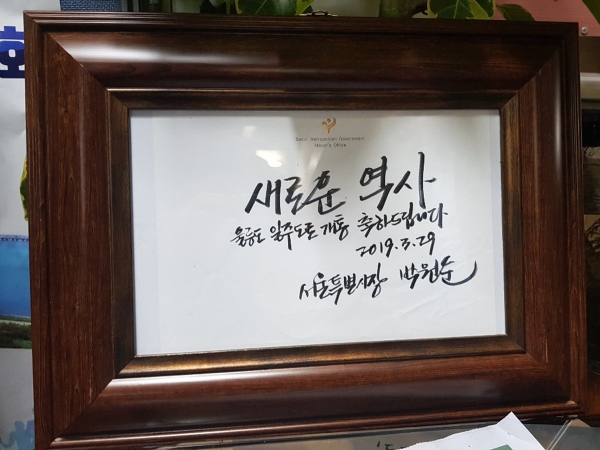 Seoul Metropolitan Government
Mayor's Office
새로운 역사
울릉도 일주도로 개통 축하드립니다
2019.3.29
서울특별시장 박원순